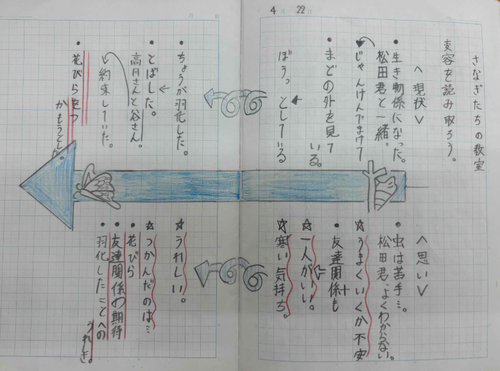 4 22
さなぎたちの教室
変容を読み取ろう。
＜現状＞
・生き物係になった。
松田君と一緒。
じゃんけんでまけて
・まどの外を見て
いる。
ぼうっとしている
ちょうが羽化した。
・とばした。
高月さんと谷さん。
約束していた。
・花びらをつ
かもうとした。
＜思い＞
・虫は苦手…。
松田君、よくわからない。
☆うまくいくか不安
・友達関係も
☆一人がいい。
☆寒い気持ち。
☆うれしい。
☆つかんだのは…
・花びら
・友達関係の期待
・羽化したことへの
うれしさ。